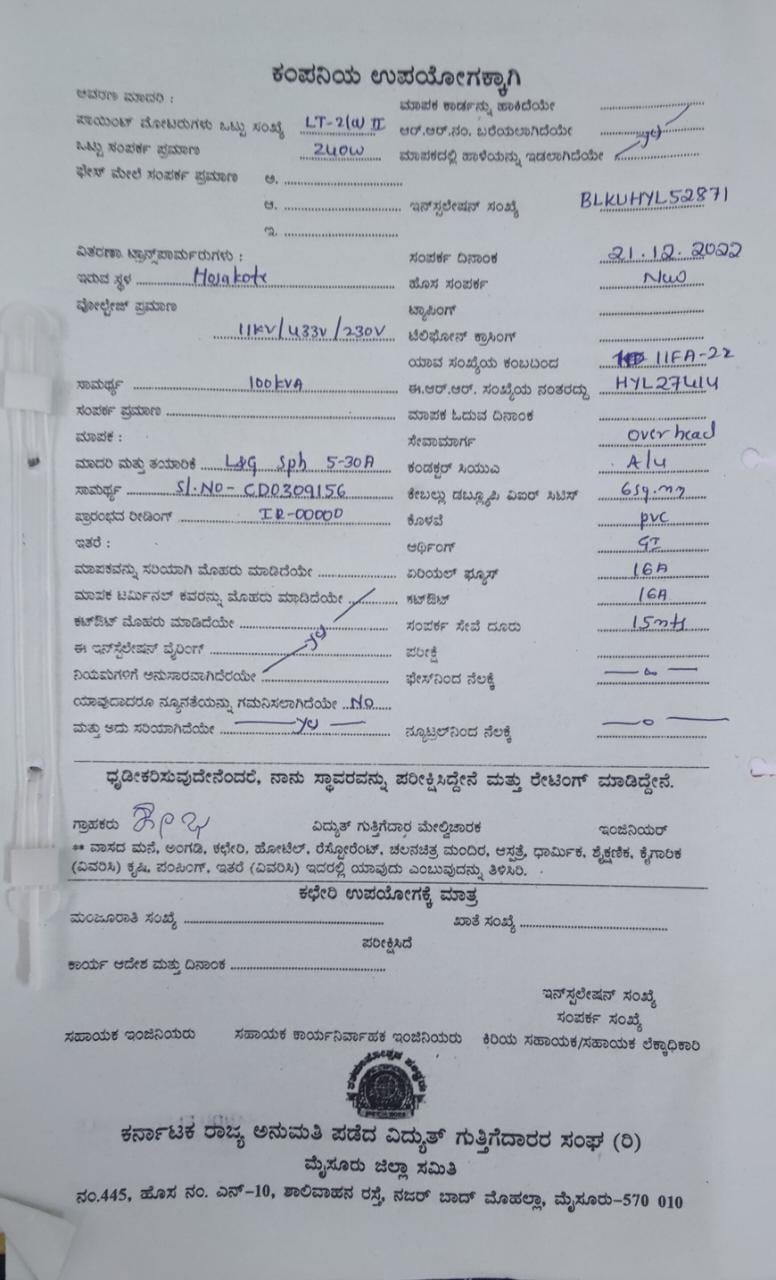 ಕಂಪನಿಯ ಉಪಯೋಗಕ್ಕಾಗಿ
ಆವರಣ ಮಾದರಿ : ಮಾಪಕ ಕಾರ್ಡನ್ನು ಹಾಕಿದೆಯೇ
ಪಾಯಿಂಟ್ ಮೋಟರುಗಳು ಒಟ್ಟು ಸಂಖ್ಯೆ LT-2(a) II ಆರ್.ಆರ್.ನಂ. ಬರೆಯಲಾಗಿದೆಯೇ yes
ಒಟ್ಟು ಸಂಪರ್ಕ ಪ್ರಮಾಣ 240W ಮಾಪಕದಲ್ಲಿ ಹಾಳೆಯನ್ನು ಇಡಲಾಗಿದೆಯೇ
ಫೇಸ್ ಮೇಲೆ ಸಂಪರ್ಕ ಪ್ರಮಾಣ ಅ.
ಆ. ಇನ್‌ಸ್ಟಲೇಷನ್ ಸಂಖ್ಯೆ BLKUHYL52871
ಇ.
ವಿತರಣಾ ಟ್ರಾನ್ಸ್‌ಫಾರ್ಮರುಗಳು : ಸಂಪರ್ಕ ದಿನಾಂಕ 21.12.2022
ಇರುವ ಸ್ಥಳ Hosakote ಹೊಸ ಸಂಪರ್ಕ New
ವೋಲ್ಟೇಜ್ ಪ್ರಮಾಣ ಟ್ಯಾಪಿಂಗ್
11KV/433V/230V ಟೆಲಿಫೋನ್ ಕ್ರಾಸಿಂಗ್
ಯಾವ ಸಂಖ್ಯೆಯ ಕಂಬದಿಂದ 11FA-22
ಸಾಮರ್ಥ್ಯ 100kVA ಈ.ಆರ್.ಆರ್. ಸಂಖ್ಯೆಯ ನಂತರದ್ದು HYL27414
ಸಂಪರ್ಕ ಪ್ರಮಾಣ ಮಾಪಕ ಓದುವ ದಿನಾಂಕ
ಮಾಪಕ : ಸೇವಾಮಾರ್ಗ over head
ಮಾದರಿ ಮತ್ತು ತಯಾರಿಕೆ L&G Sph 5-30A ಕಂಡಕ್ಟರ್ ಸಿಯುಎ A/U
ಸಾಮರ್ಥ್ಯ Sl.NO- CD0309156 ಕೇಬಲ್ಲು ಡಬ್ಲ್ಯೂಪಿ ವಿಐಆರ್ ಸಿಟಿಸ್ 6sq.mm
ಪ್ರಾರಂಭದ ರೀಡಿಂಗ್ IR-00000 ಕೊಳವೆ pvc
ಇತರೆ : ಆರ್ಥಿಂಗ್ GI
ಮಾಪಕವನ್ನು ಸರಿಯಾಗಿ ಮೊಹರು ಮಾಡಿದೆಯೇ ಏರಿಯಲ್ ಫ್ಯೂಸ್ 16A
ಮಾಪಕ ಟರ್ಮಿನಲ್ ಕವರನ್ನು ಮೊಹರು ಮಾಡಿದೆಯೇ ಕಟ್‌ಔಟ್ 16A
ಕಟ್‌ಔಟ್ ಮೊಹರು ಮಾಡಿದೆಯೇ yes ಸಂಪರ್ಕ ಸೇವೆ ದೂರು 15mts
ಈ ಇನ್‌ಸ್ಟೆಲೇಷನ್ ವೈರಿಂಗ್ ಪರೀಕ್ಷೆ
ನಿಯಮಗಳಿಗೆ ಅನುಸಾರವಾಗಿದೆರೆಯೇ ಫೇಸ್‌ನಿಂದ ನೆಲಕ್ಕೆ — o —
ಯಾವುದಾದರೂ ನ್ಯೂನತೆಯನ್ನು ಗಮನಿಸಲಾಗಿದೆಯೇ No
ಮತ್ತು ಅದು ಸರಿಯಾಗಿದೆಯೇ — yes — ನ್ಯೂಟ್ರಲ್‌ನಿಂದ ನೆಲಕ್ಕೆ — o —
ಧೃಡೀಕರಿಸುವುದೇನೆಂದರೆ, ನಾನು ಸ್ಥಾವರವನ್ನು ಪರೀಕ್ಷಿಸಿದ್ದೇನೆ ಮತ್ತು ರೇಟಿಂಗ್ ಮಾಡಿದ್ದೇನೆ.
ಗ್ರಾಹಕರು ವಿದ್ಯುತ್ ಗುತ್ತಿಗೆದಾರ ಮೇಲ್ವಿಚಾರಕ ಇಂಜಿನಿಯರ್
** ವಾಸದ ಮನೆ, ಅಂಗಡಿ, ಕಛೇರಿ, ಹೋಟೆಲ್, ರೆಸ್ಟೋರೆಂಟ್, ಚಲನಚಿತ್ರ ಮಂದಿರ, ಆಸ್ಪತ್ರೆ, ಧಾರ್ಮಿಕ, ಶೈಕ್ಷಣಿಕ, ಕೈಗಾರಿಕ
(ವಿವರಿಸಿ) ಕೃಷಿ, ಪಂಪಿಂಗ್, ಇತರೆ (ವಿವರಿಸಿ) ಇದರಲ್ಲಿ ಯಾವುದು ಎಂಬುವುದನ್ನು ತಿಳಿಸಿರಿ.
ಕಛೇರಿ ಉಪಯೋಗಕ್ಕೆ ಮಾತ್ರ
ಮಂಜೂರಾತಿ ಸಂಖ್ಯೆ ಖಾತೆ ಸಂಖ್ಯೆ
ಪರೀಕ್ಷಿಸಿದೆ
ಕಾರ್ಯ ಆದೇಶ ಮತ್ತು ದಿನಾಂಕ
ಇನ್‌ಸ್ಪಲೇಷನ್ ಸಂಖ್ಯೆ
ಸಂಪರ್ಕ ಸಂಖ್ಯೆ
ಸಹಾಯಕ ಇಂಜಿನಿಯರು ಸಹಾಯಕ ಕಾರ್ಯನಿರ್ವಾಹಕ ಇಂಜಿನಿಯರು ಕಿರಿಯ ಸಹಾಯಕ/ಸಹಾಯಕ ಲೆಕ್ಕಾಧಿಕಾರಿ
ಕರ್ನಾಟಕ ರಾಜ್ಯ ಅನುಮತಿ ಪಡೆದ ವಿದ್ಯುತ್ ಗುತ್ತಿಗೆದಾರರ ಸಂಘ (ರಿ)
ಮೈಸೂರು ಜಿಲ್ಲಾ ಸಮಿತಿ
ನಂ.445, ಹೊಸ ನಂ. ಎನ್-10, ಶಾಲಿವಾಹನ ರಸ್ತೆ, ನಜರ್ ಬಾದ್ ಮೊಹಲ್ಲಾ, ಮೈಸೂರು-570 010